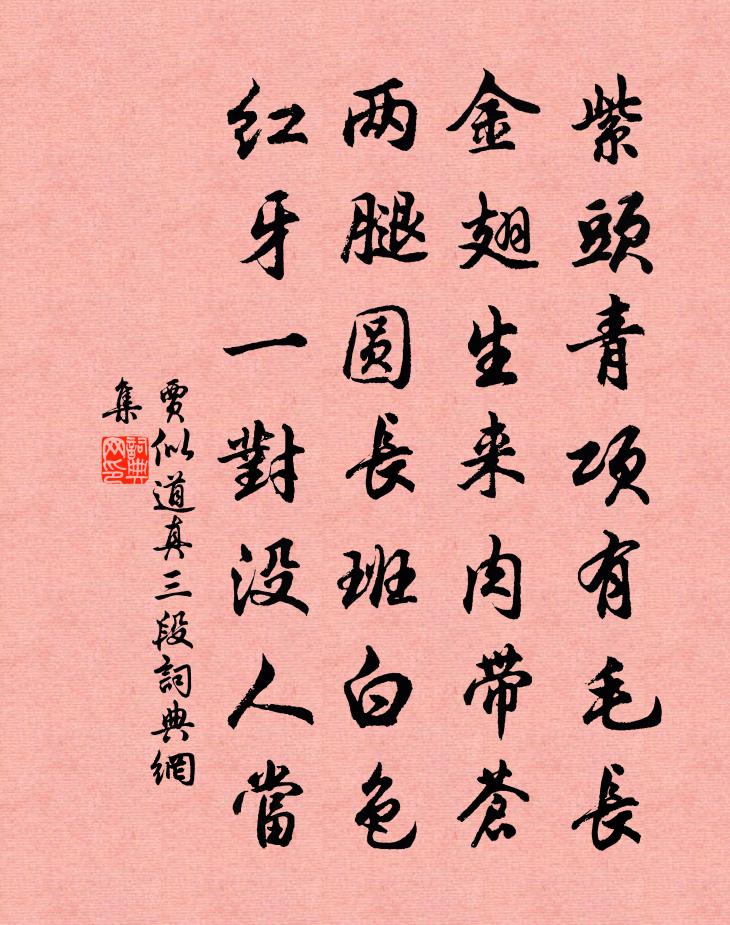 紫頭青项有毛長
金翅生来肉带蒼
两腿圆長班白色
红牙一對没人當
賈似道真三段詞典網
集
詞典網印